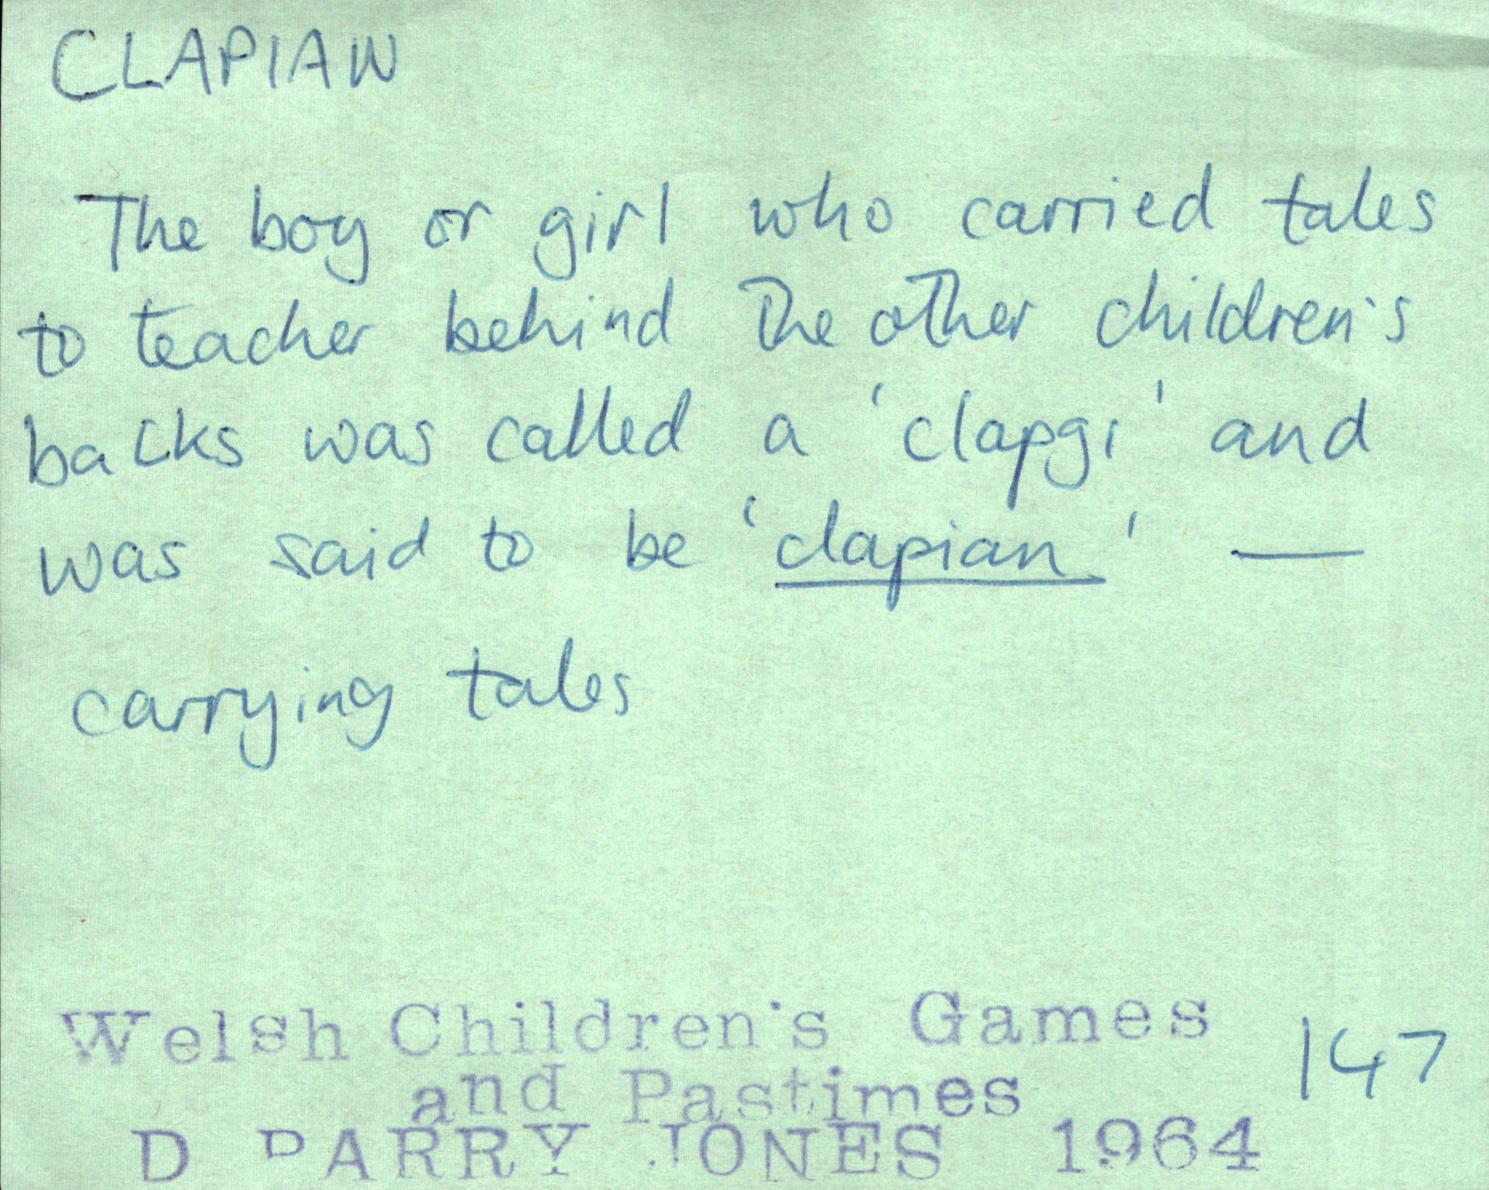 CLAPIAN
The boy or girl who carried tales
to teacher behind the other children's
backs was called a 'clapgi' and
was said to be 'clapian' —
carrying tales
Welsh Children's Games
and Pastimes
147
D PARRY JONES 1964